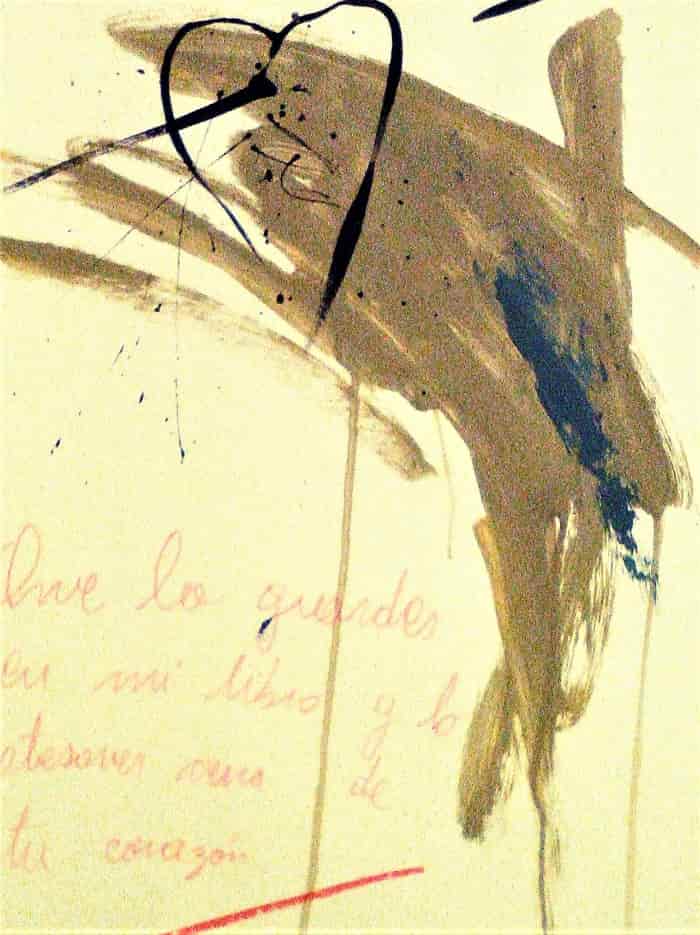 Que lo guardes
en mi libro y lo
atesores cerca de
tu corazón